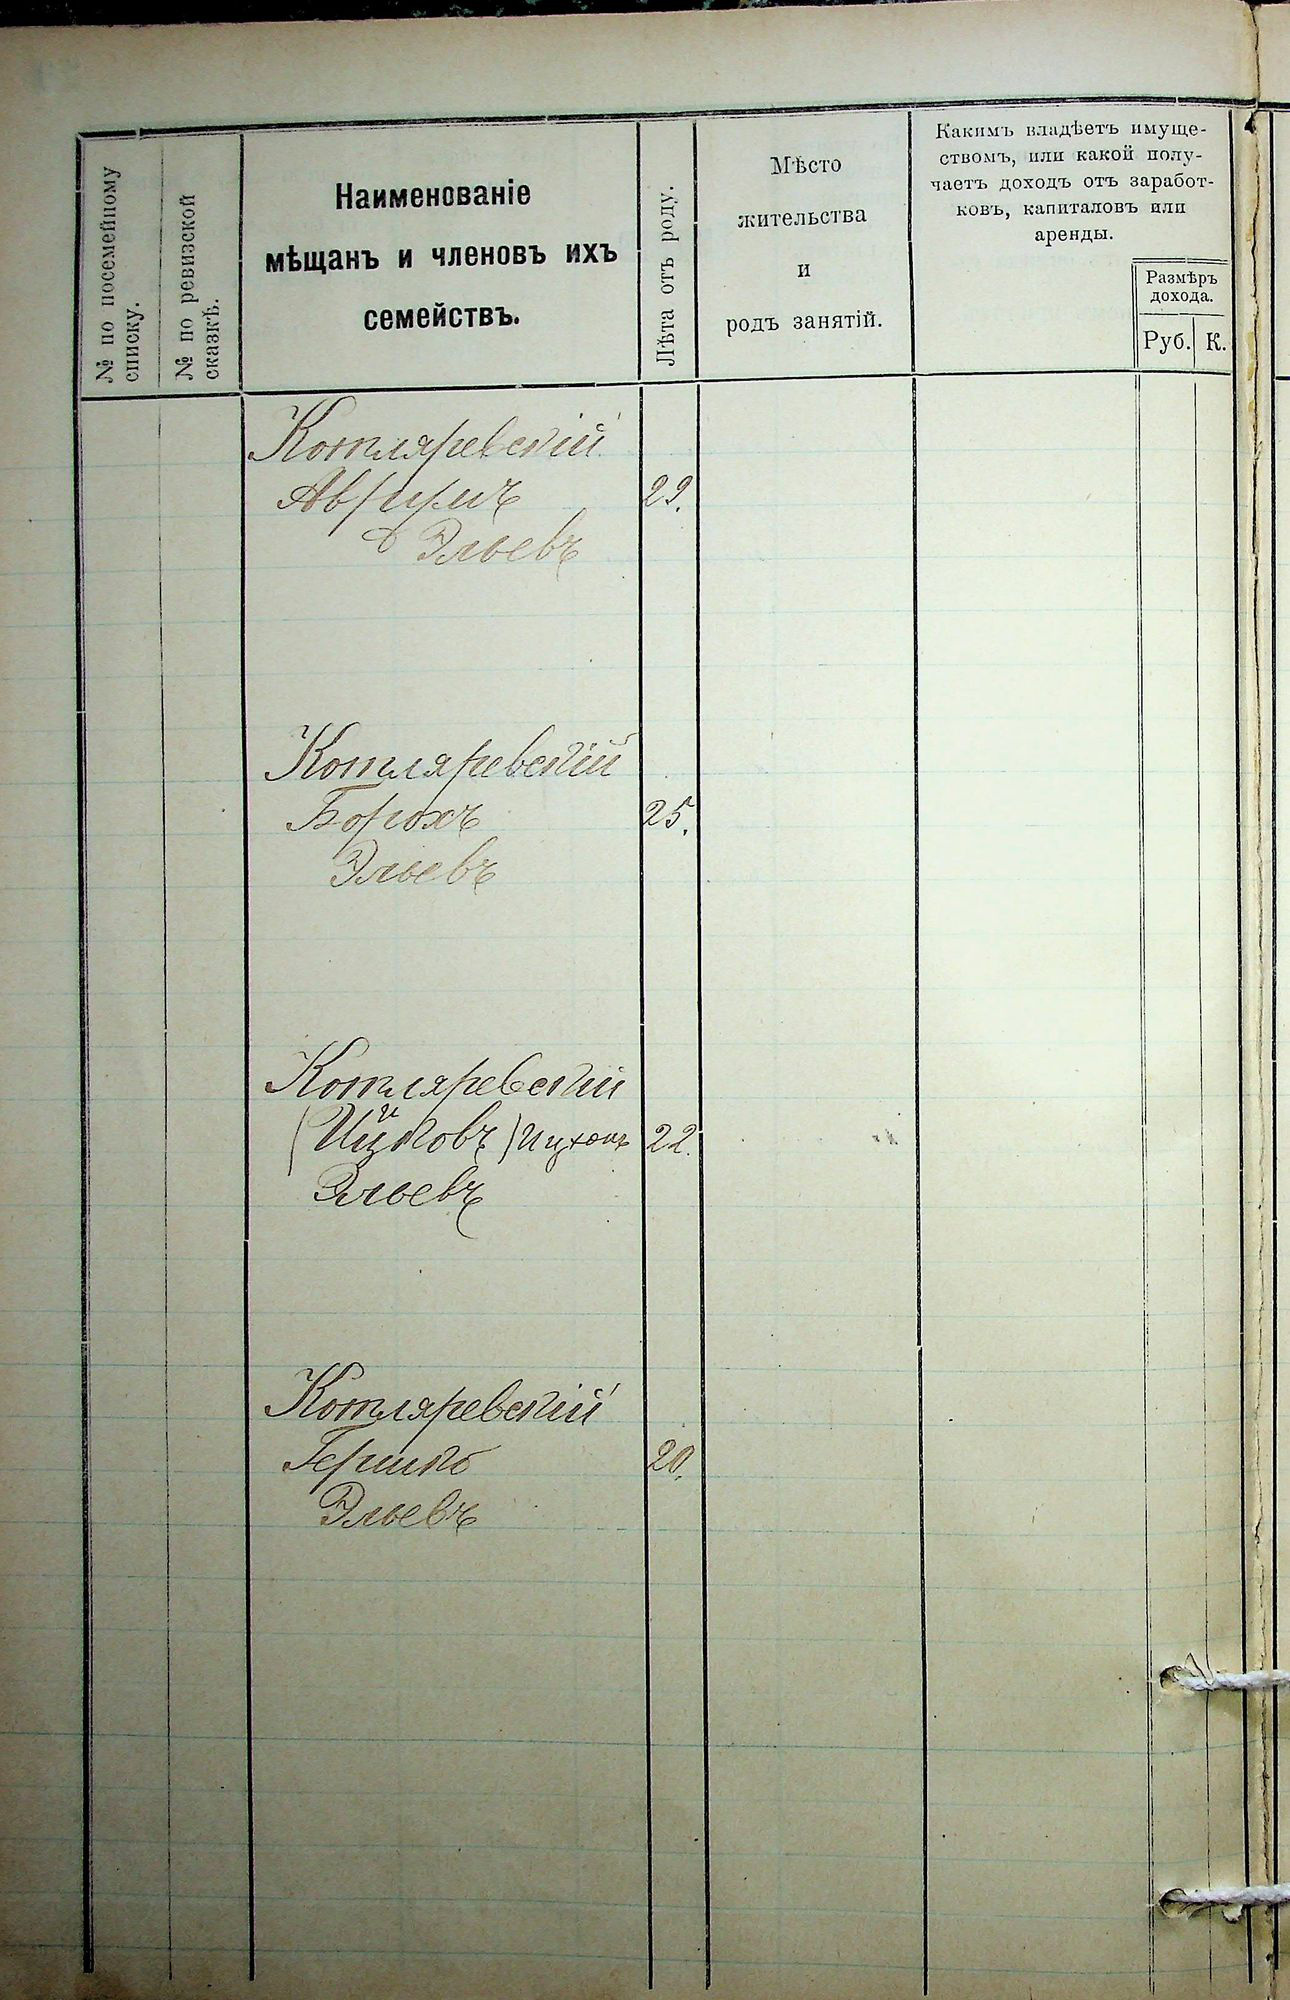 № по посемейному
списку.
№ по ревизской
сказкѣ.
Наименованіе
мѣщанъ и членовъ ихъ
семействъ.
Лѣта отъ роду.
Мѣсто
жительства
и
родъ занятій.
Какимъ владѣетъ имуще-
ствомъ, или какой полу-
чаетъ доходъ отъ заработ-
ковъ, капиталовъ или
аренды.
Размѣръ
дохода.
Руб. К.
Котляревскій
Аврумъ 29.
Эльевъ
Котляревскій
Борохъ 25.
Эльевъ
Котляревскій
(Ицковъ) Ицхокъ 22.
Эльевъ
Котляревскій
Гершко 20.
Эльевъ